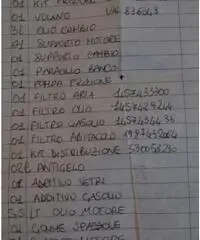 01 KIT
01 VOLANO VAL 836043
3L OLIO CAMBIO
01 SUPPORTO MOTORE
01 SUPPORTO CAMBIO
01 PARAOLIO BANCO
01 POMPA FRIZIONE
01 FILTRO ARIA 1457433300
01 FILTRO OLIO 1457429244
01 FILTRO GASOLIO 1457434436
01 FILTRO ABITACOLO 1987432064
01 KIT DISTRIBUZIONE 530058230
02L ANTIGELO
01 ADDITIVO VETRI
01 ADDITIVO GASOLIO
5,5 LT OLIO MOTORE
01 GOMME SPAZZOLE
MOTORE